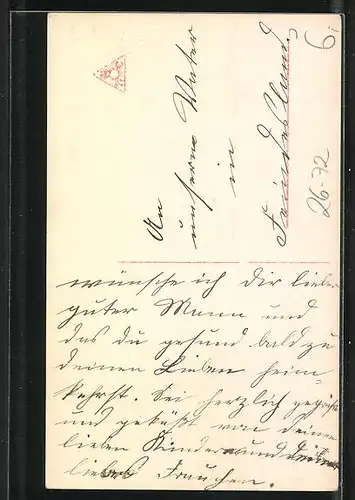 An
unseren Vater
in
Feindes Land.
6,-
26-72
wünsche ich Dir lieber
guter Mann und
das du gesund bald zu
deinen Lieben heim-
kehrst. Sei herzlich gegrüßt
und geküßt von deinen
lieben Kinder und deinem
lieben Frauchen.